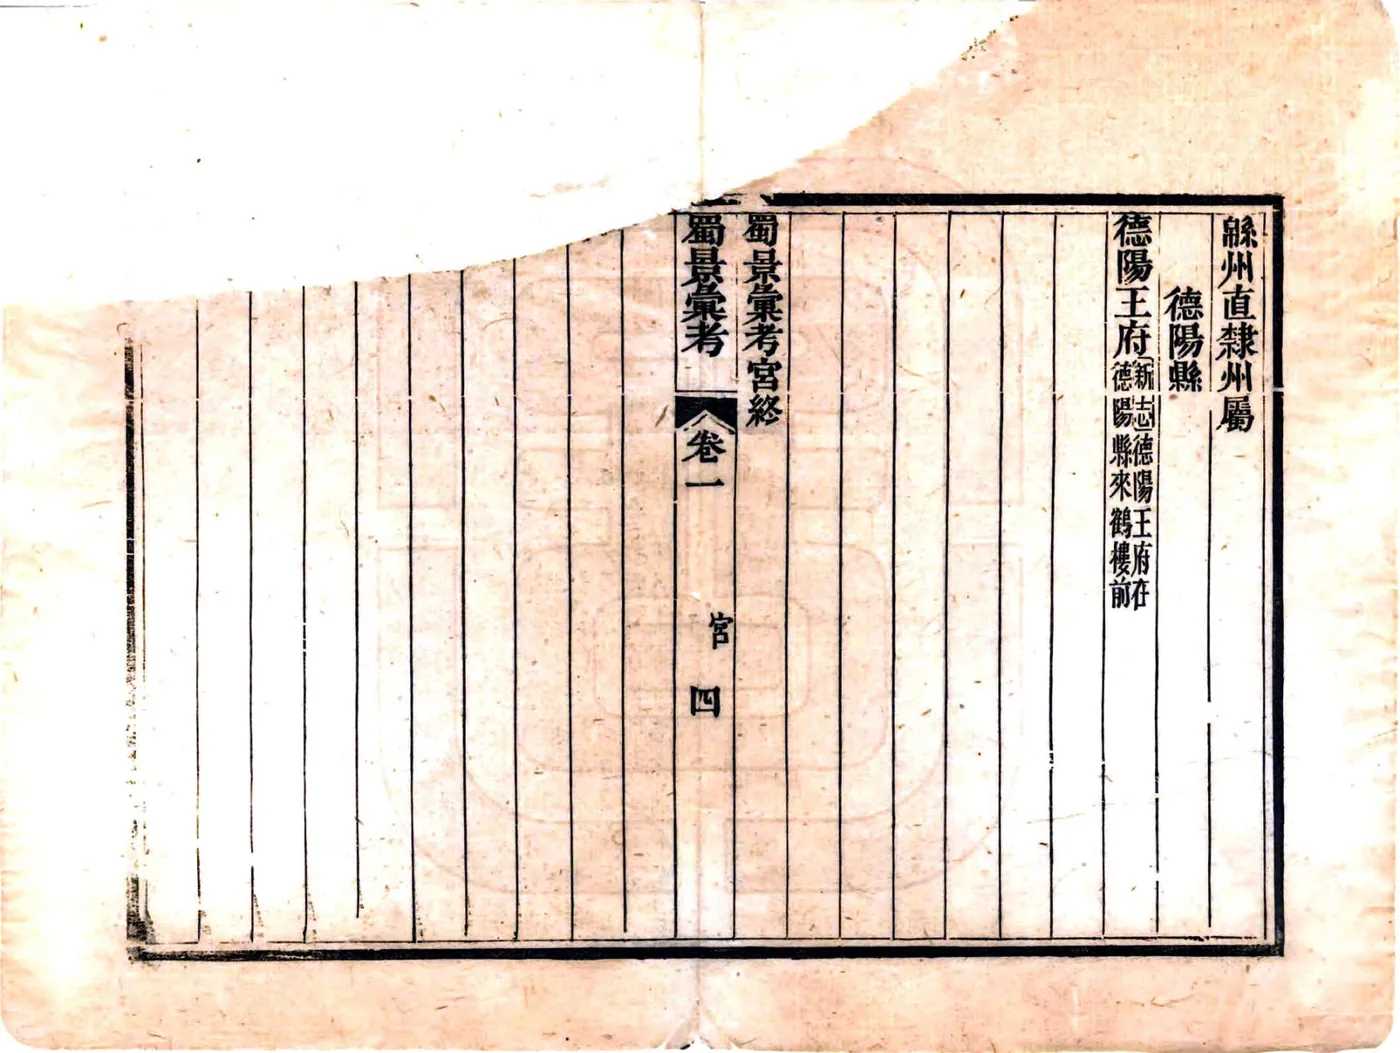 緜州直隸州屬
德陽縣
德陽王府新志德陽王府在
德陽縣來鶴樓前
蜀景彙考宮終
蜀景彙考
卷一
宮
四